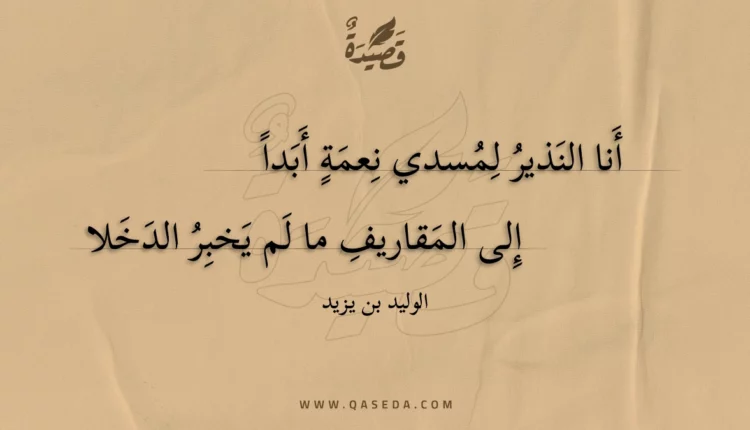 قَصِيدَةٌ
أَنا النَذيرُ لِمُسدي نِعمَةٍ أَبَداً
إِلى المَقاريفِ ما لَم يَخبِرُ الدَخَلا
الوليد بن يزيد
WWW.QASEDA.COM